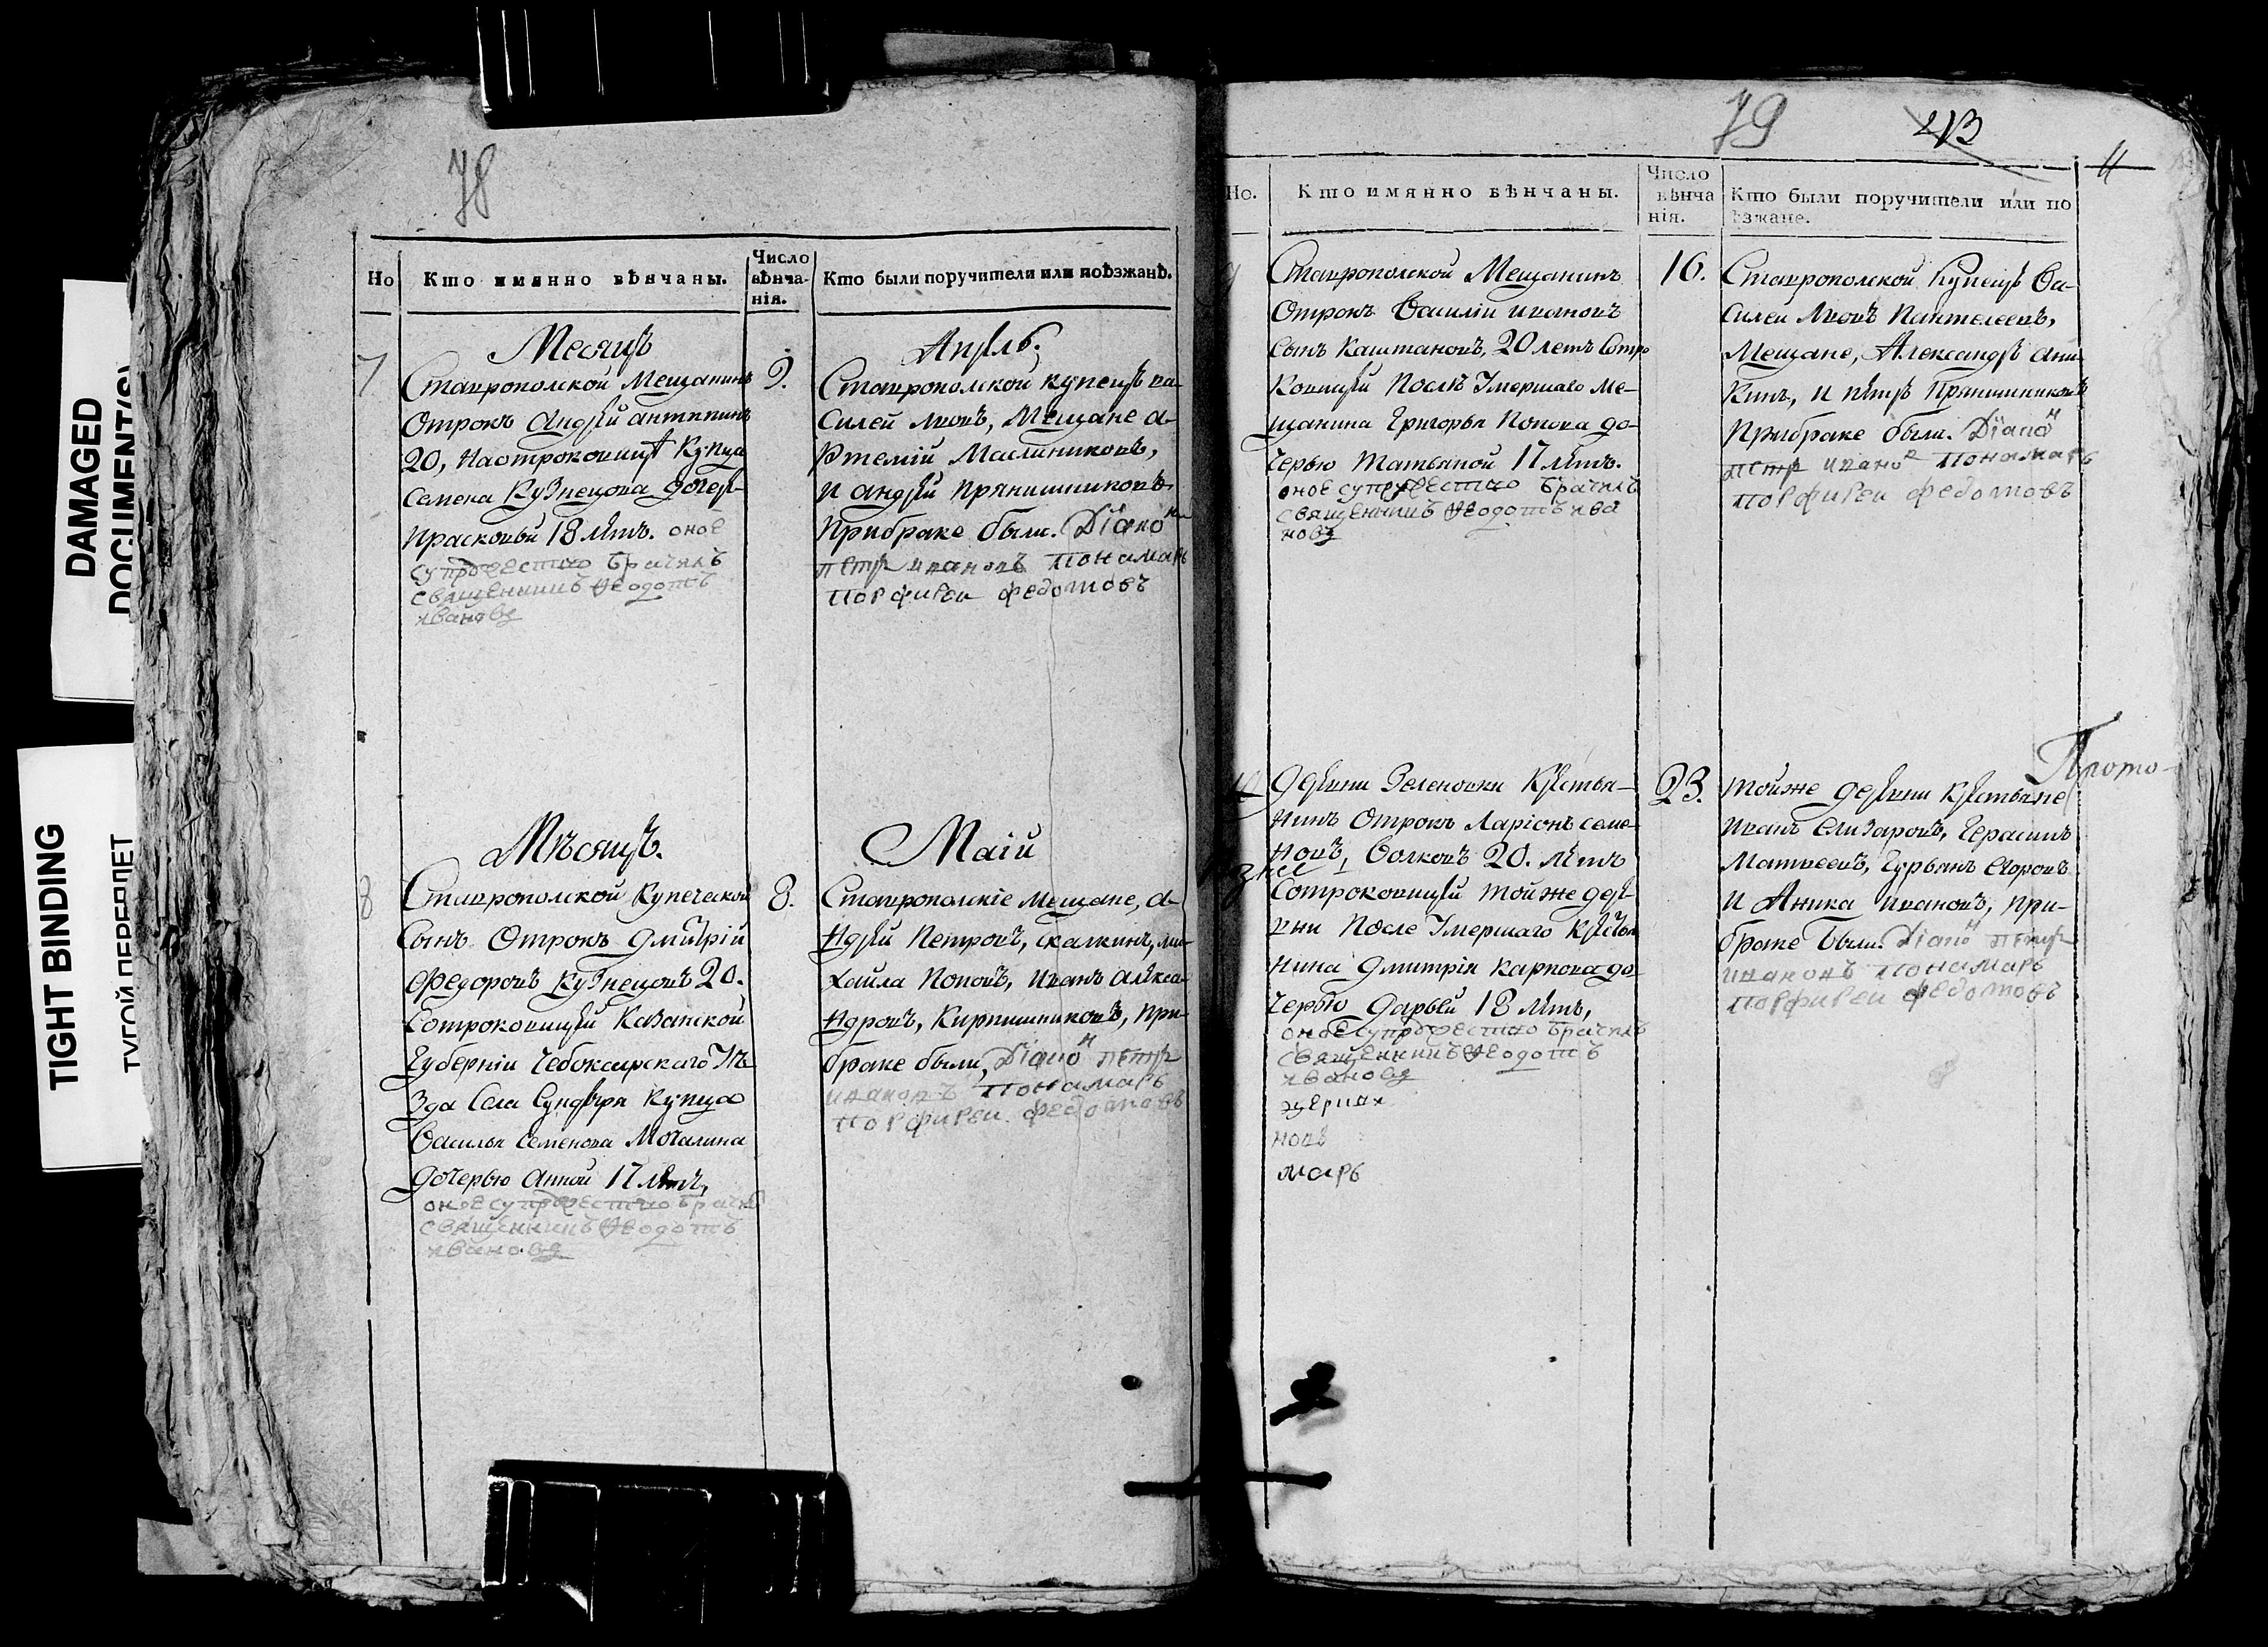 DAMAGED
DOCUMENT(S)
TIGHT BINDING
ТУГОЙ ПЕРЕПЛЕТ
78
Но
Кто имянно вѣнчаны.
Число
вѣнча-
нія.
Кто были поручители или поѣзжанѣ.
Месяцъ
Апрѣль.
7
Ставрополской Мещанинъ
Отрокъ Андрѣй антипинъ
20, Наотроковицѣ Купца
Семена Кузнецова дочер-
Прасковьи 18 лѣтъ. оное
супружество Брачилъ
священникъ Ѳеодотъ
иванов
9.
Ставрополской купецъ ва-
силей львовъ, Мещане а-
ртемій Маслиниковъ,
и андрѣй прянишниковъ
Прибраке были. Diaко
петръ ивановъ пономарь
порфиреи федотовъ
Мѣсяцъ.
Маій
8
Ставрополской Купеческой
Сынъ Отрокъ Дмитрій
Федоровъ Кузнецовъ 20.
Сотроковицѣй Казанской
Губерніи Чебоксарскаго Уѣ-
Зда Села Сундыря Купца
Василья Семенова Мочалина
дочерью Анной 17 лѣтъ,
оное супружество брачил
священникъ Ѳеодотъ
иванов
8.
Ставрополскіе Мещане, а-
Ндрѣй Петровъ, скалкинъ, ми-
хайла Поповъ, Иванъ Алекса-
Ндровъ, Кирпишниковъ, при-
браке были, Diaко петръ
ивановъ Пономарь
порфиреи федотовъ
79
213
11
Но.
Кто имянно вѣнчаны.
Число
вѣнча
нія.
Кто были поручители или по
ѣзжане.
9
Ставрополской Мещанинъ
Отрокъ Василій ивановъ
Сынъ Каштановъ, 20 летъ Сотро
Ковицѣй Послѣ Умершаго Ме-
щанина Григорья Попова до-
Черью Татьяной 17 лѣтъ.
оное супружество Брачилъ
священникъ Ѳеодотъ ива
нов
16.
Ставрополской Купецъ Ва-
Силей Львовъ Пантелеевъ,
Мещане, Александръ Ани-
Кинъ, и пѣтръ Прянишниковъ
Прибраке были. Diaко
петръ ивано пономарь
порфиреи федотовъ
Прото-
10
Деревни Зеленовки Крѣстья-
Нинъ Отрокъ Ларіонъ семе-
Новъ, Волковъ 20. лѣтъ
Сотроковицѣй тойже дер-
вни После Умершаго Крѣстья
Нина Дмитрія Карпова до-
Черью Дарьей 18 лѣтъ,
оное супружество Брачилъ
священникъ Ѳеодотъ
иванов
новъ
марь
23.
тойже деревни Крѣстьяне
Иванъ Елизаровъ, Герасимъ
Матвеевъ, Гурьянъ Егоровъ
и Аника Ивановъ, при-
браке Были. Diaко петръ
ивановъ Пономарь
порфиреи федотовъ